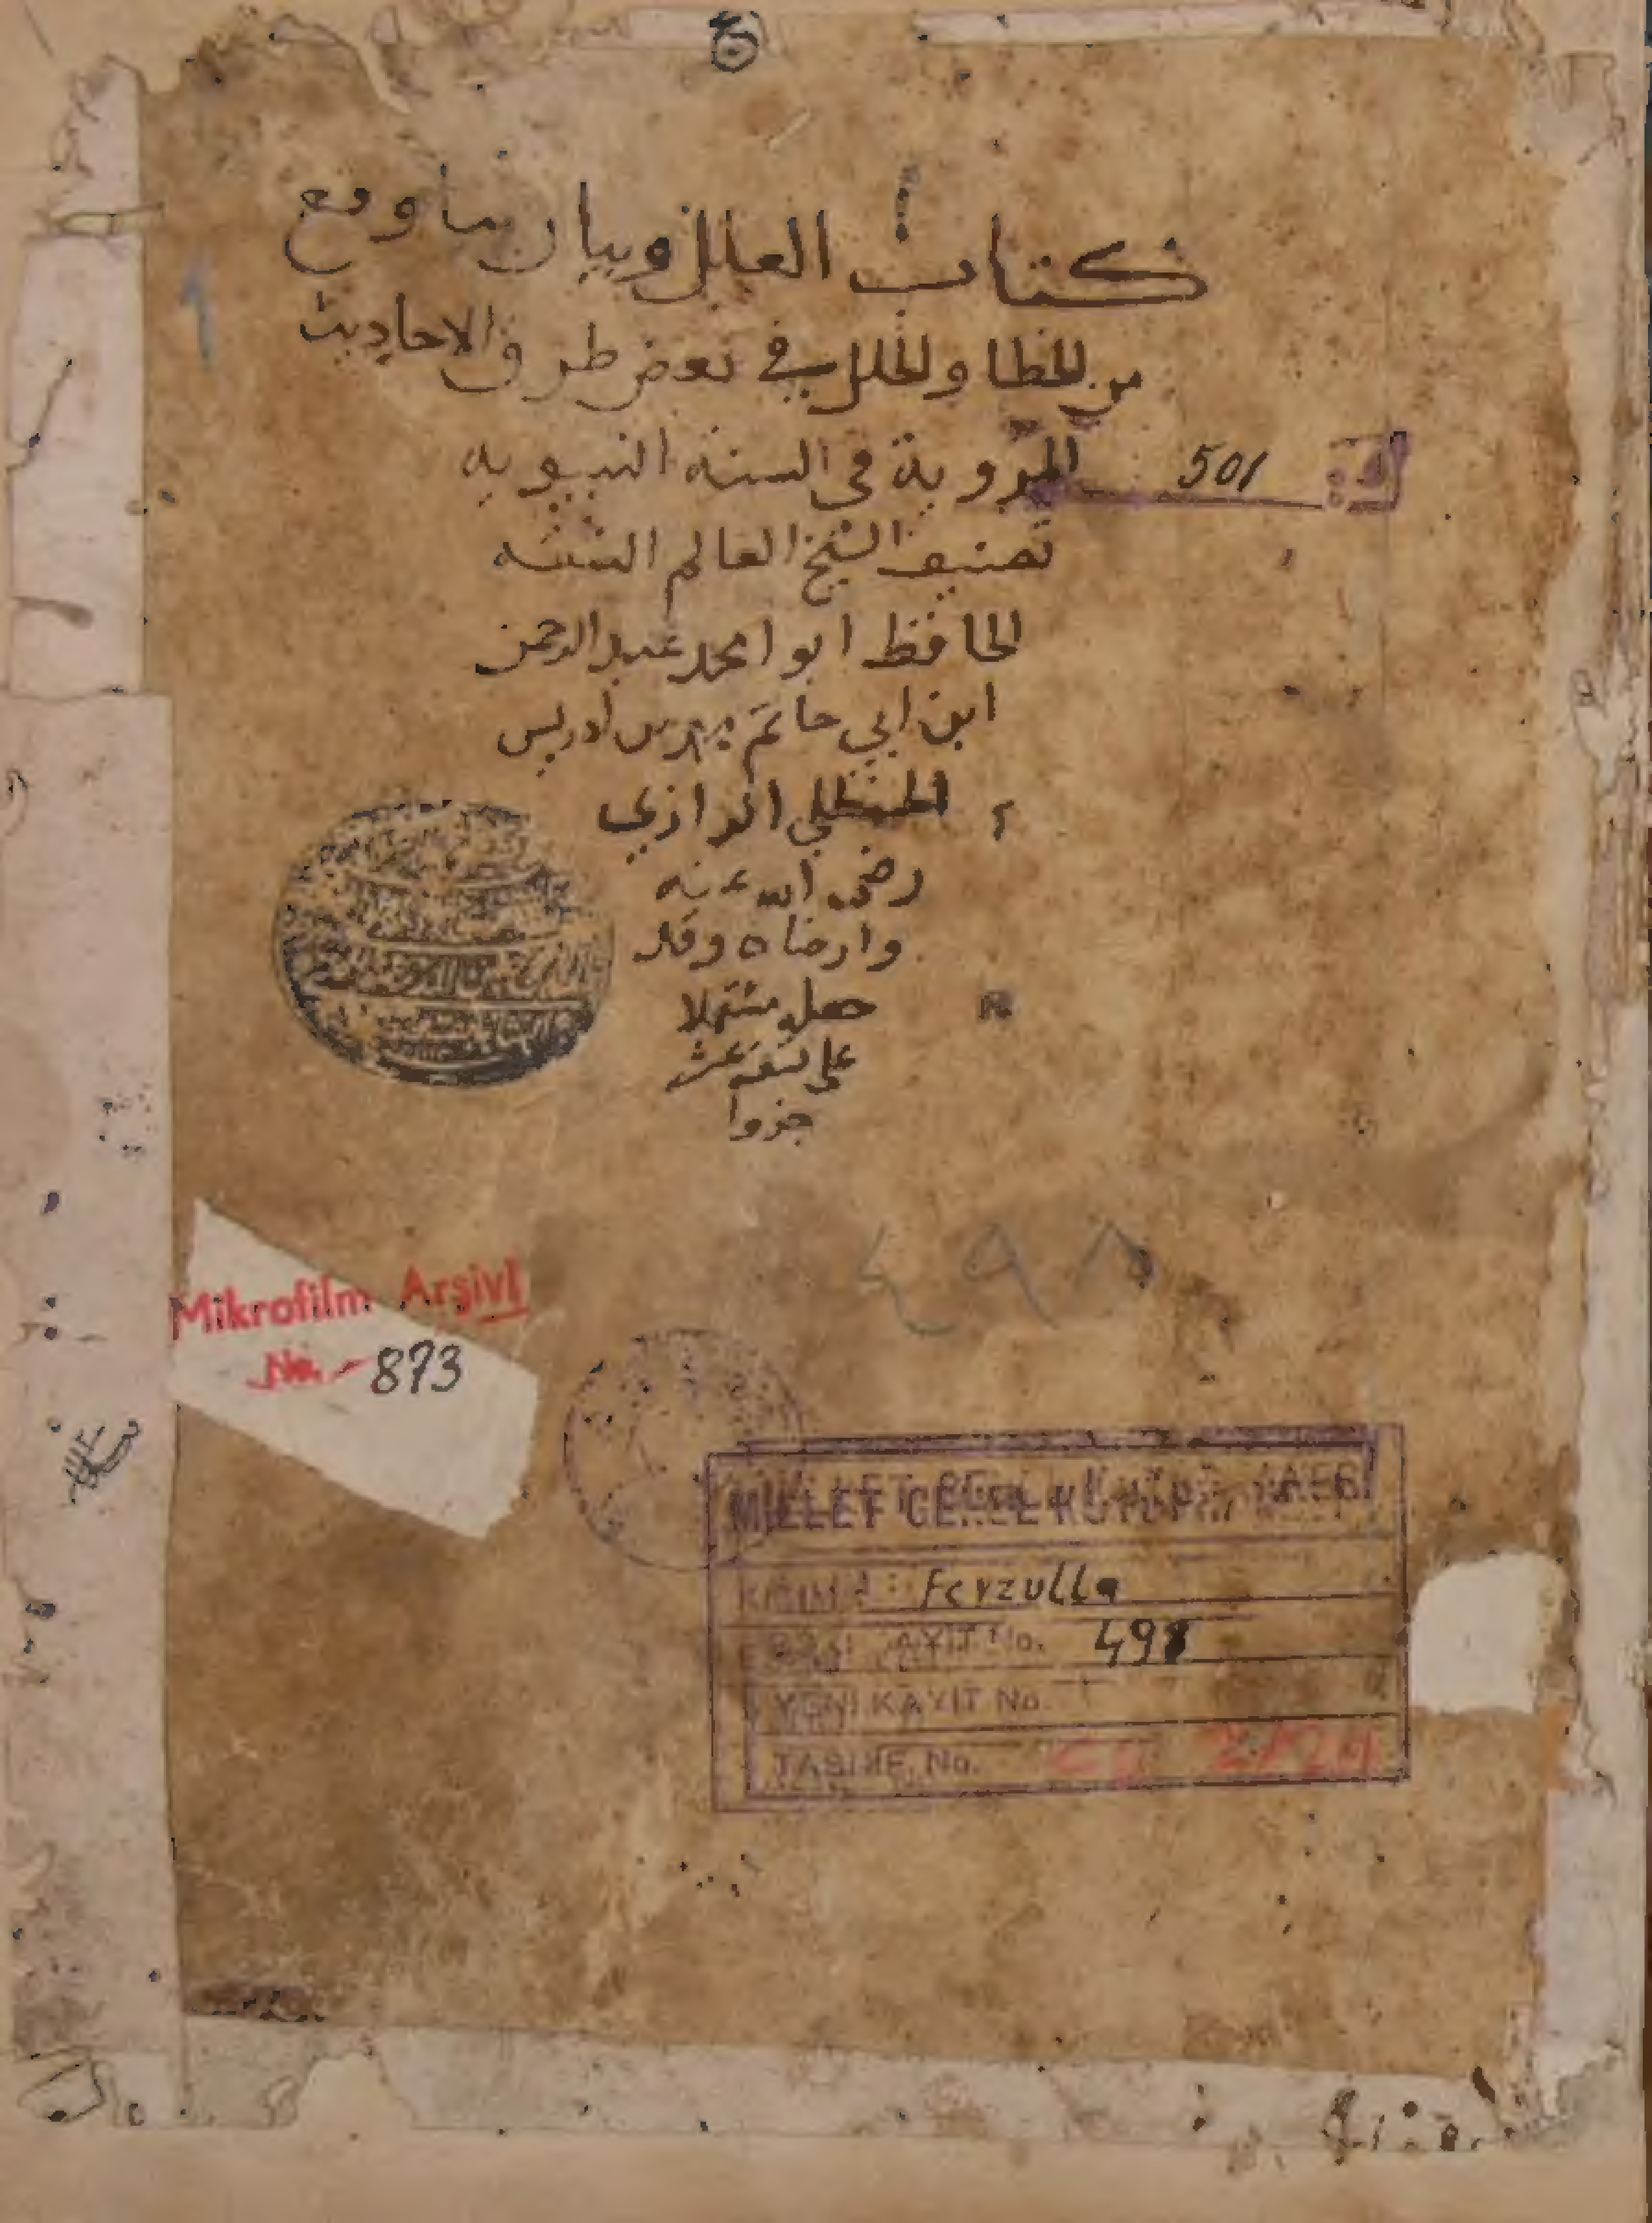 كتاب العلل وبيان ما وقع
من الخطا والخلل في بعض طرق الاحاديث
المروية في السنه النبويه
501
تصنيف الشيخ العالم الثقه
الحافظ ابو امحمد عبد الرحمن
ابن ابي حاتم محمد بن ادريس
الحنظلي الرازي
رضى الله عنه
وارضاه وقد
جعله مشتملا
على سبعة عشر
جزوا
٤٩٨
Mikrofilm Arşivi
No. - 873
MİLLET GENEL KÜTÜPHANESİ
KISIM : Feyzulla
ESKİ KAYIT No. 498
YENİ KAYIT No.
TASNİF No.